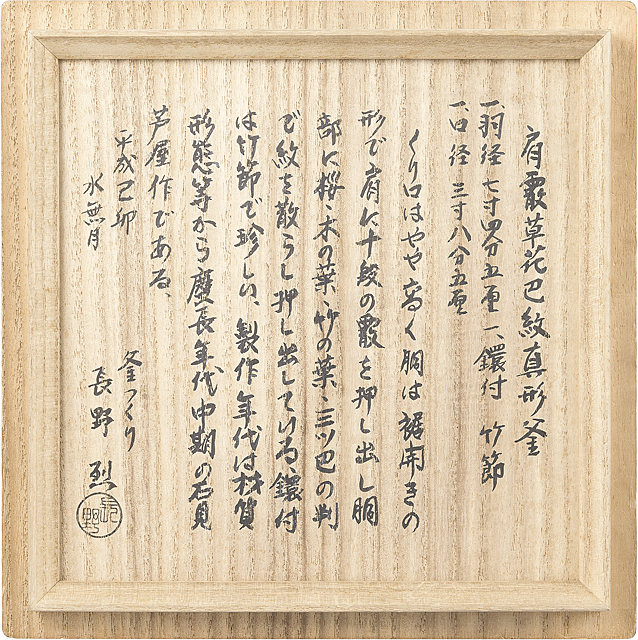 肩霰草花巴紋真形釜
一、羽径 七寸四分五厘 一、鐶付 竹節
一、口径 三寸八分五厘
くり口はやや高く胴は裾開きの
形で肩に十段の霰を押し出し胴
部に桜、木の葉、竹の葉、三ツ巴の判
で紋を散らし押し出している、鐶付
は竹節で珍しい、製作年代は材質
形態等から慶長年代中期の石見
芦屋作である、
平成己卯
水無月
釜つくり
長野 烈
長野